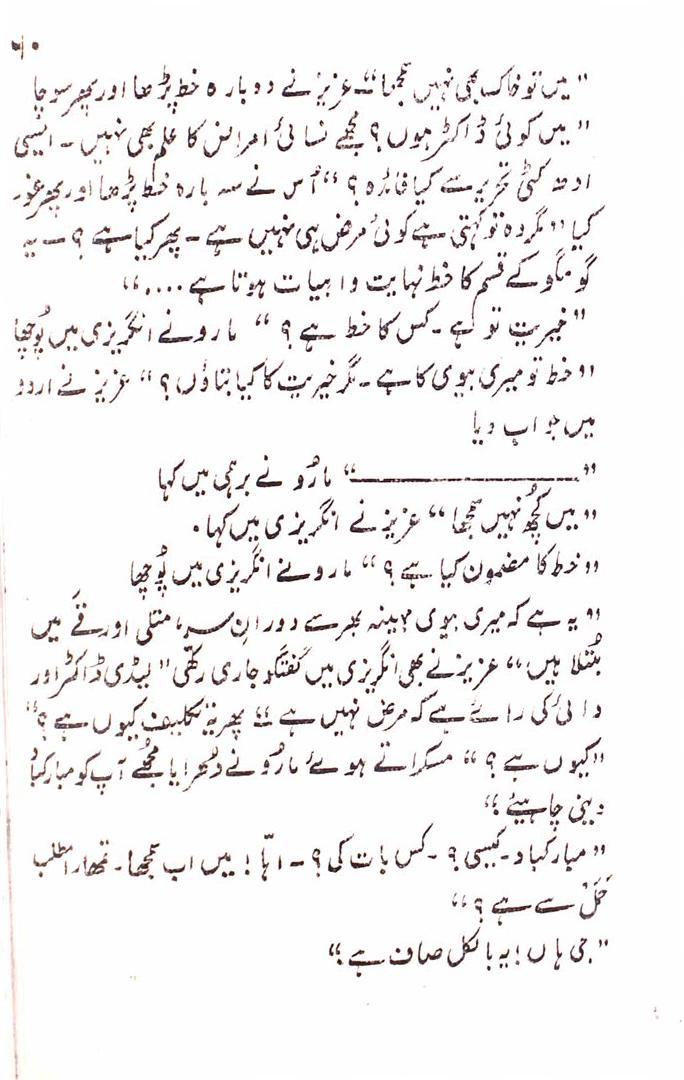 ۶۰
"میں تو خاک بھی نہیں سمجھا"۔ عزیز نے دوبارہ خط پڑھا اور پھر سوچا
"میں کوئی ڈاکٹر ہوں؟ مجھے نسائی امراض کا علم بھی نہیں۔ ایسی
ادھ کٹی تحریر سے کیا فائدہ؟" اُس نے سہ بارہ خط پڑھا اور پھر غور
کیا "مگر وہ تو کہتی ہے کوئی مرض ہی نہیں ہے۔ پھر کیا ہے؟۔ یہ
گو مگو کے قسم کا خط نہایت واہیات ہوتا ہے ...."
"خیریت تو ہے۔ کس کا خط ہے؟" مارو نے انگریزی میں پُوچھا
"خط تو میری بیوی کا ہے۔ مگر خیریت کا کیا بتاؤں؟" عزیز نے اردو
میں جواب دیا
"ــــــــــــــــــــ" مارُو نے برہمی میں کہا
"میں کچُھ نہیں سمجھا" عزیز نے انگریزی میں کہا۔
"خط کا مضمون کیا ہے؟" مارو نے انگریزی میں پُوچھا
"یہ ہے کہ میری بیوی مہینہ بھر سے دورانِ سر، متلی اور قے میں
مُبتلا ہیں" عزیز نے بھی انگریزی میں گفتگو جاری رکھی "لیڈی ڈاکٹر اور
دائی کی رائے ہے کہ مرض نہیں ہے" پھر یہ تکلیف کیوں ہے؟"
"کیوں ہے؟" مسکراتے ہوئے مارُو نے دُھرایا مجُھے آپ کو مبارکباد
دینی چاہیئے"
"مبارکباد۔ کیسی؟۔ کس بات کی؟۔ اہّا! میں اب سمجھا۔ تمھارا مطلب
حَمَلْ سے ہے؟"
"جی ہاں! یہ بالکل صاف ہے"